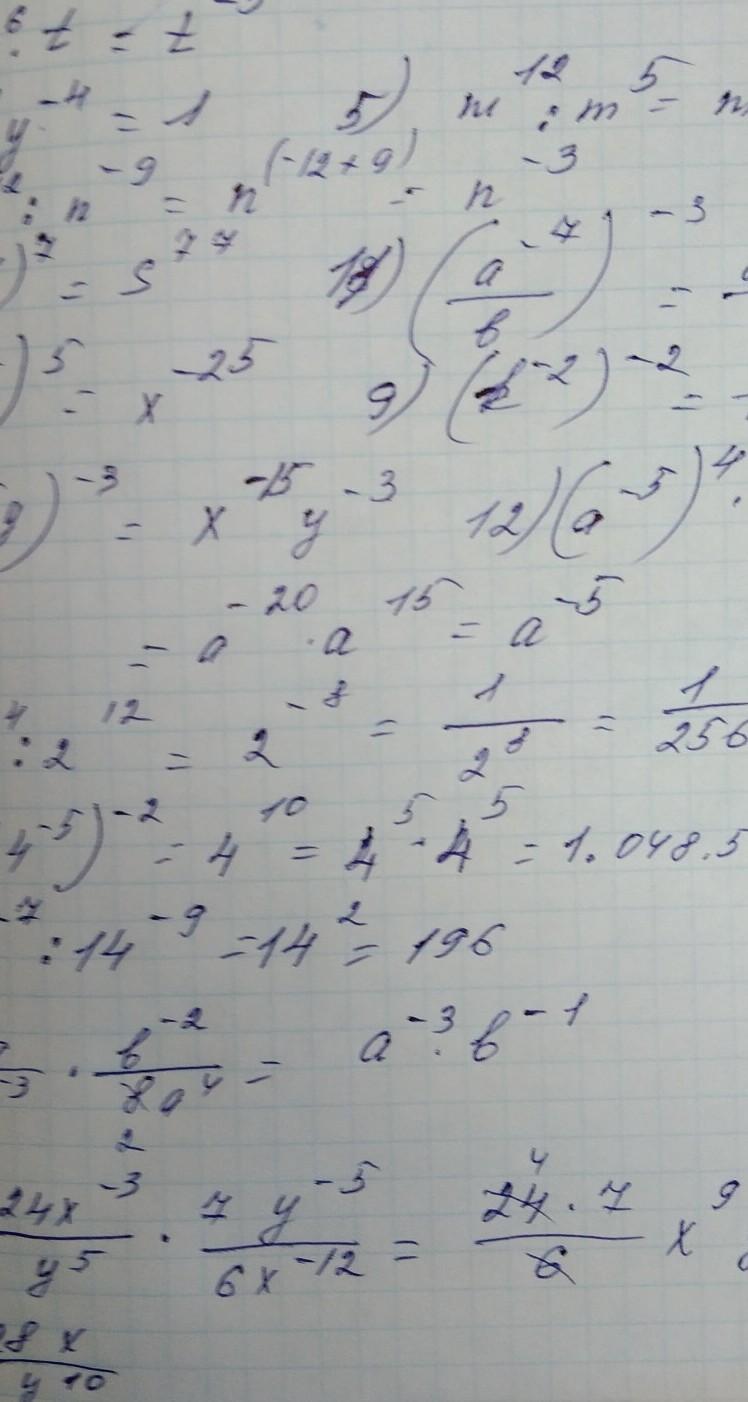 ⁶ : t = t⁻
y⁻⁴ = 1 5) m¹² : m⁵ = m
: n⁻⁹ = n⁽⁻¹²⁺⁹⁾ = n⁻³
)⁷ = S⁷⁷ (a⁻⁷/b)⁻³ =
)⁵ = x⁻²⁵ 9) ( ⁻²)⁻² =
)⁻³ = x⁻¹⁵ y⁻³ 12) (a⁻⁵)⁴ ·
= a⁻²⁰ · a¹⁵ = a⁻⁵
⁴ : 2¹² = 2⁻⁸ = 1/2⁸ = 1/256
4⁻⁵)⁻² = 4¹⁰ = 4⁵ · 4⁵ = 1.048.5
⁻⁷ : 14⁻⁹ = 14² = 196
⁻³ · b⁻²/8a⁴ = a⁻³ · b⁻¹
2
24x⁻³/y⁵ · 7y⁻⁵/6x⁻¹² = 24 · 7/6 x⁹
4
8x/y¹⁰